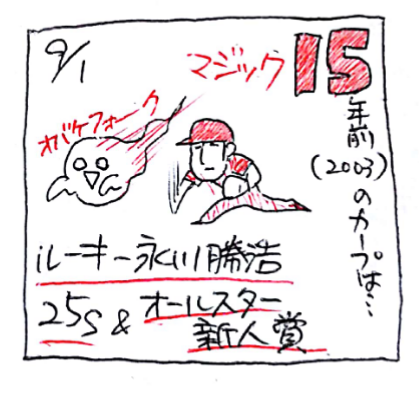 9/1
マジック15
年前
(2003)
のカープは…
オバケフォーク
ルーキー永川勝浩
25S & オールスター
新人賞